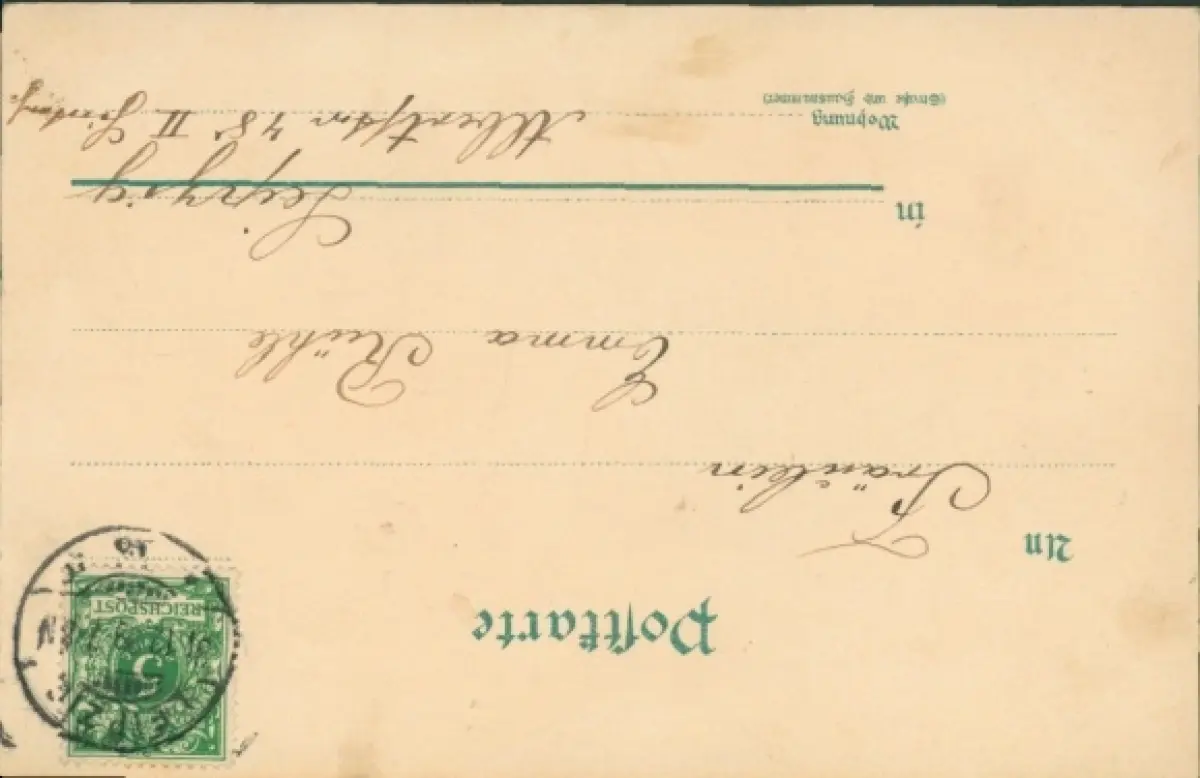 Postkarte
An
Fräulein
Emma Rühle
in Leipzig
Wohnung
(Straße und Hausnummer)
Albertstr 48 II
REICHSPOST
5
LEIPZI